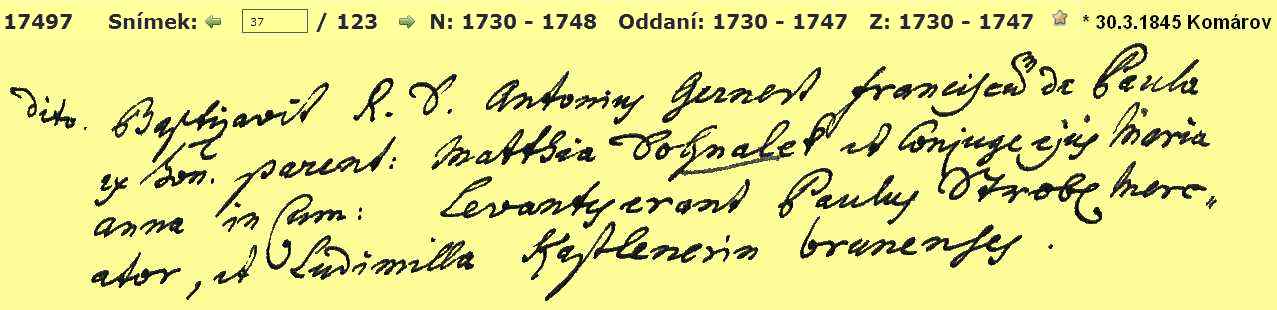 17497 Snímek: 37 / 123 N: 1730 - 1748 Oddaní: 1730 - 1747 Z: 1730 - 1747 * 30.3.1845 Komárov
dito. Baptizavit R. D. Antonius Gernert Franciscum de Paula
ex hon. parent: Matthia Dohnalek et Conjuge ejus Maria
anna in Cum: Levantes erant Paulus Strobl Merc„
ator, et Ludimilla Kastlenerin brunenses.